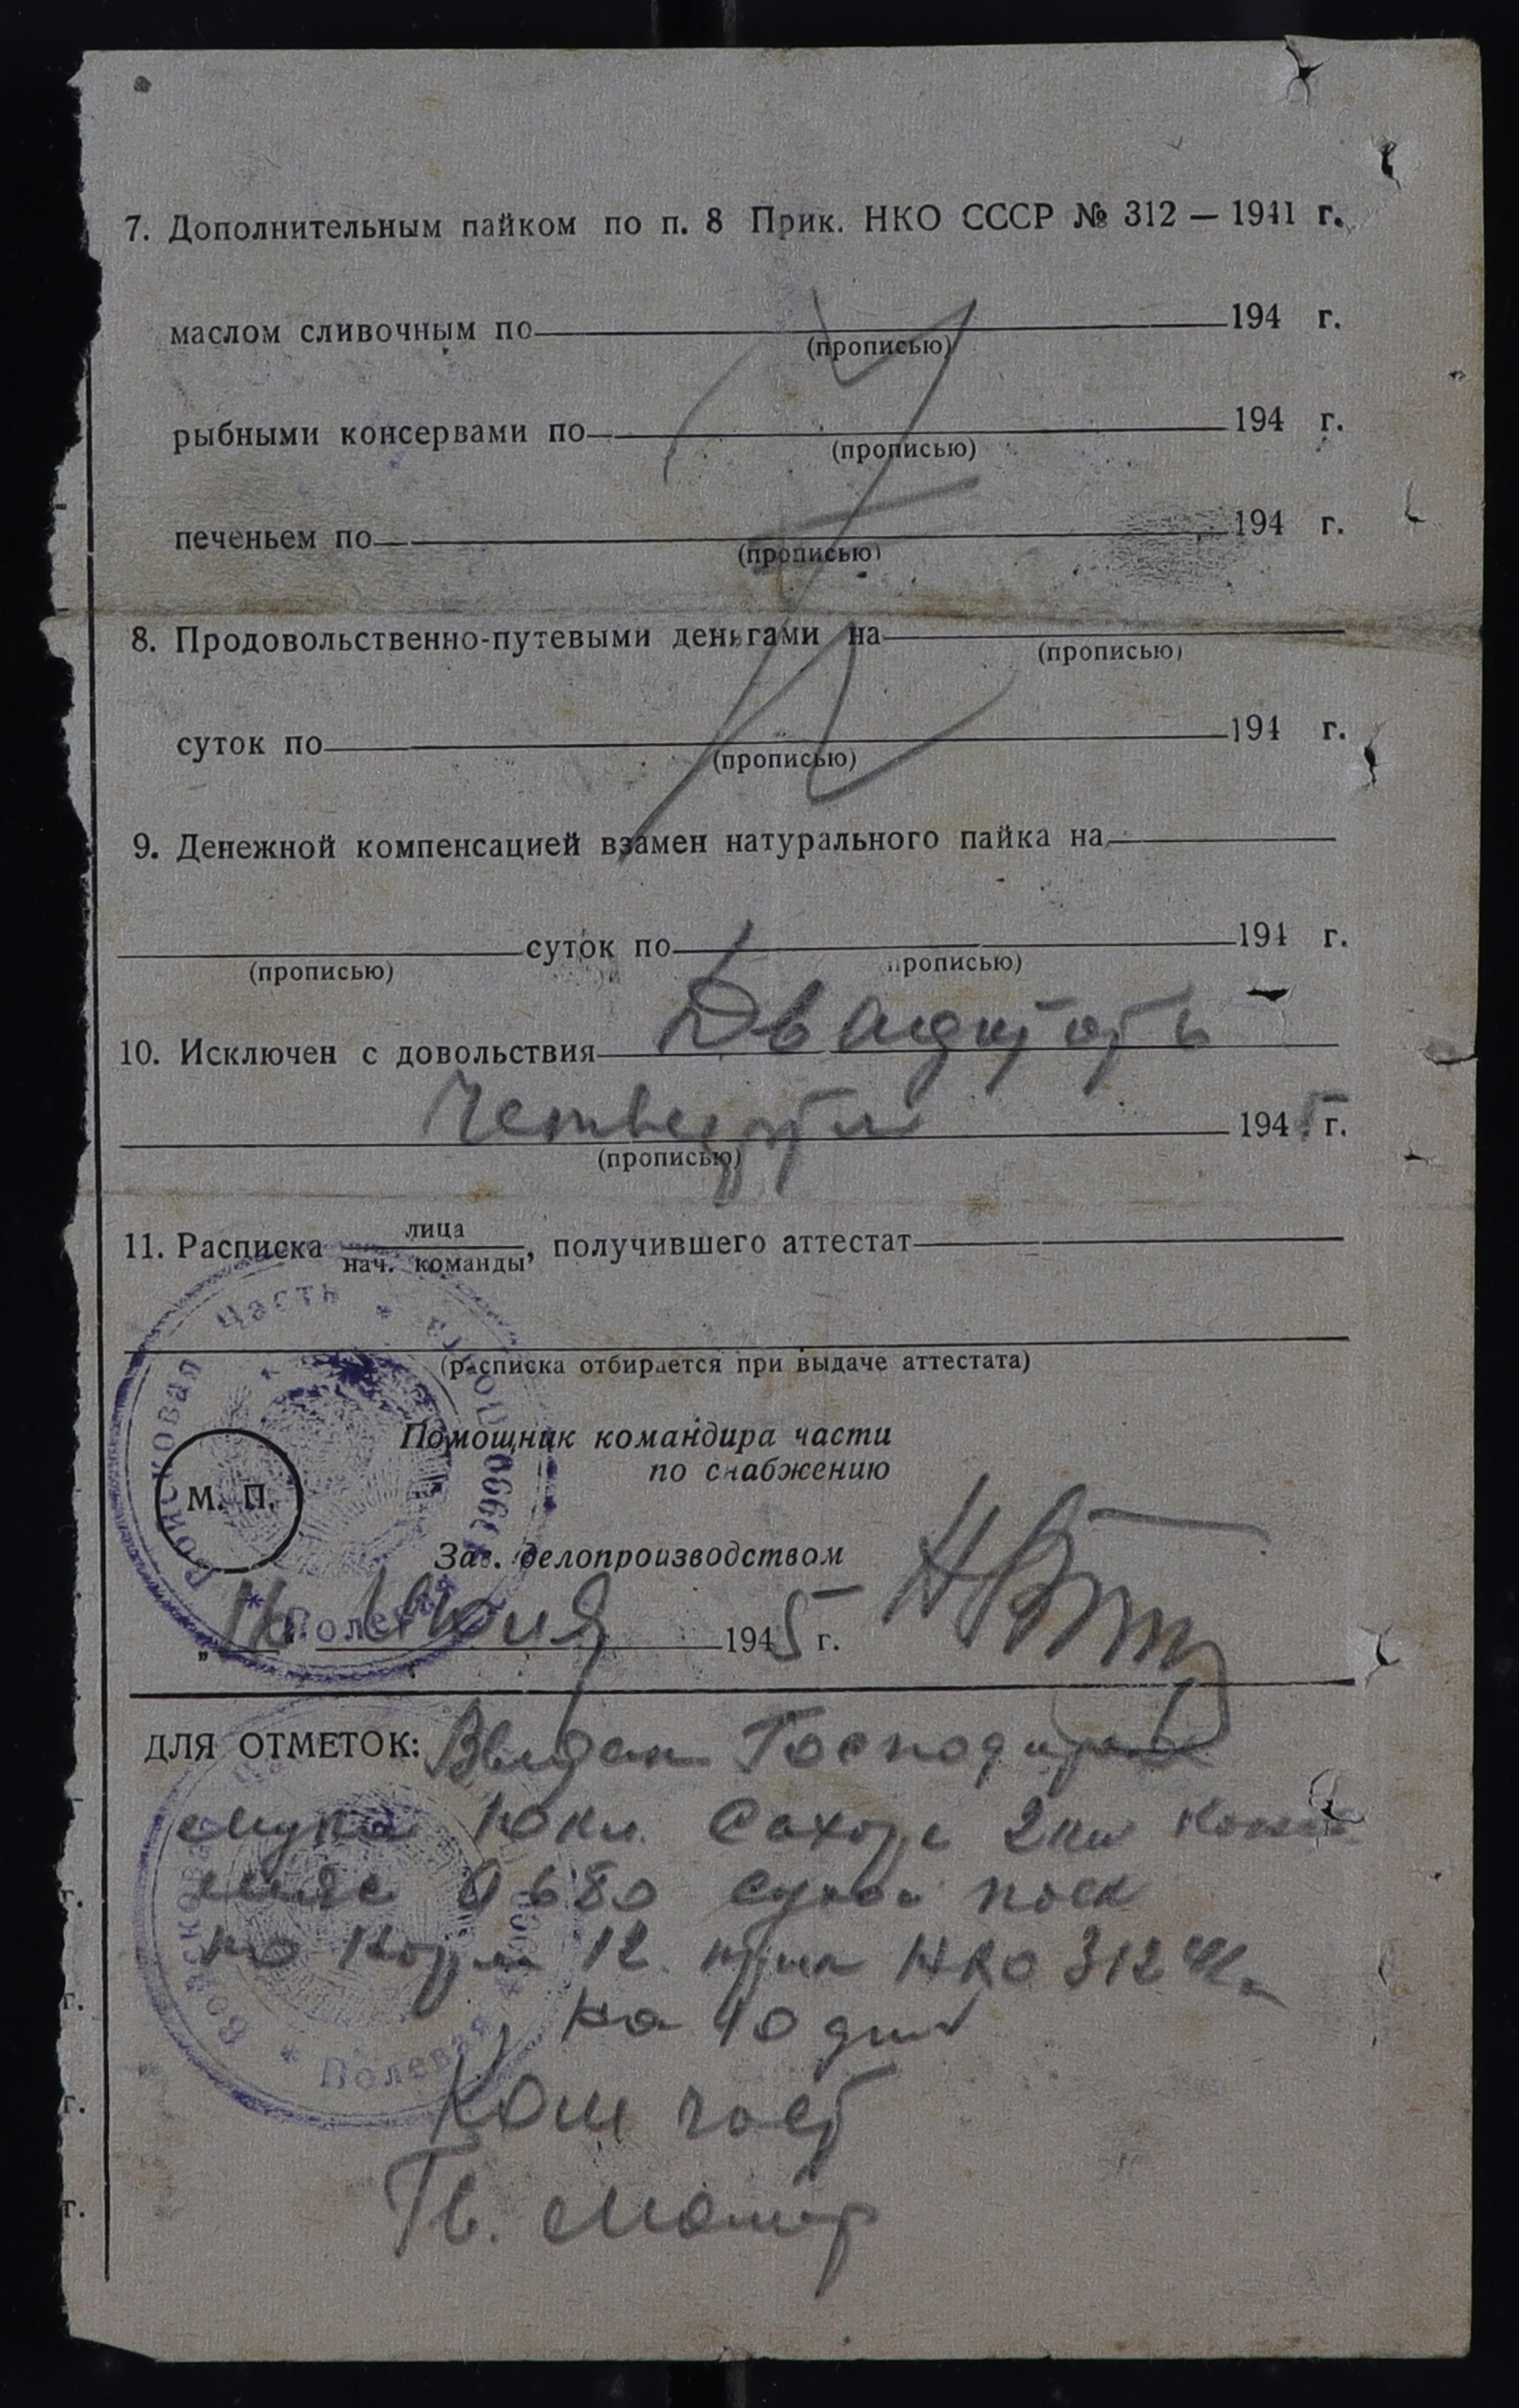 7. Дополнительным пайком по п. 8 Прик. НКО СССР № 312 — 1941 г.
маслом сливочным по 194 г.
(прописью)
рыбными консервами по 194 г.
(прописью)
печеньем по 194 г.
(прописью)
8. Продовольственно-путевыми деньгами на
(прописью)
суток по 194 г.
(прописью)
9. Денежной компенсацией взамен натурального пайка на
суток по 194 г.
(прописью) (прописью)
10. Исключен с довольствия Двадцать
Четвертого 1945 г.
(прописью)
11. Расписка лица
нач. команды, получившего аттестат
(расписка отбирается при выдаче аттестата)
Войсковая Часть * Полевая
Помощник командира части
по снабжению
М. П.
Зав. делопроизводством
„ Июня 1945 г.
ДЛЯ ОТМЕТОК: Выдан
мука 10 кл. Сахора 2 кл
мяс 0680 сухой поек
по Норм 12 прик НКО 312 41 г
на 10 дней
Войсковая * Полевая
Ком част
Гв. Маиор
г.
г.
г.
г.